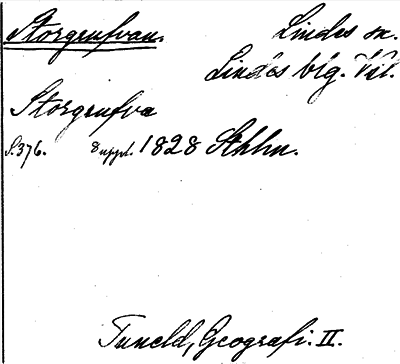 Storgrufvan. Lindes sn.
Lindes bg. Vtl.
Storgrufva
S. 376. 8 uppl. 1828 Sthlm.
Tuneld, Geografi. II.